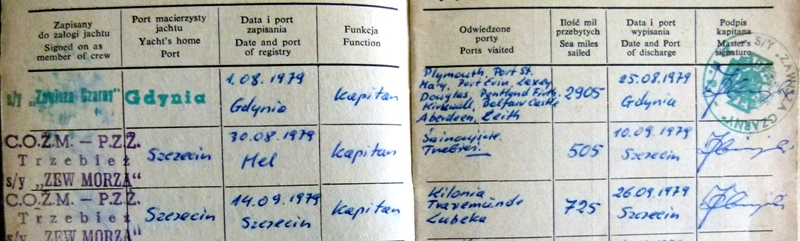 Zapisany
do załogi jachtu
Signed on as
member of crew
Port macierzysty
jachtu
Yacht's home
Port
Data i port
zapisania
Date and port
of registry
Funkcja
Function
Odwiedzone
porty
Ports visited
Ilość mil
przebytych
Sea miles
sailed
Data i port
wypisania
Date and Port
of discharge
Podpis
kapitana
Master's
signature
s/y "Zawisza Czarny"
Gdynia
1.08.1979
Gdynia
Kapitan
Plymouth, Port St.
Mary, Port Erin, Laxey
Douglas, Pyntland Firth
Kirkwall, Belfair Castle
Aberdeen, Leith
2905
25.08.1979
Gdynia
S/Y „ZAWISZA CZARNY"
C.O.Ż.M. – P.Z.Ż.
Trzebież
s/y „ZEW MORZA"
Szczecin
30.08.1979
Hel
Kapitan
Świnoujście
Trzebież
505
10.09.1979
Szczecin
C.O.Ż.M. – P.Z.Ż.
Trzebież
s/y „ZEW MORZA"
Szczecin
14.09.1979
Szczecin
Kapitan
Kilonia
Travemünde
Lubeka
725
26.09.1979
Szczecin